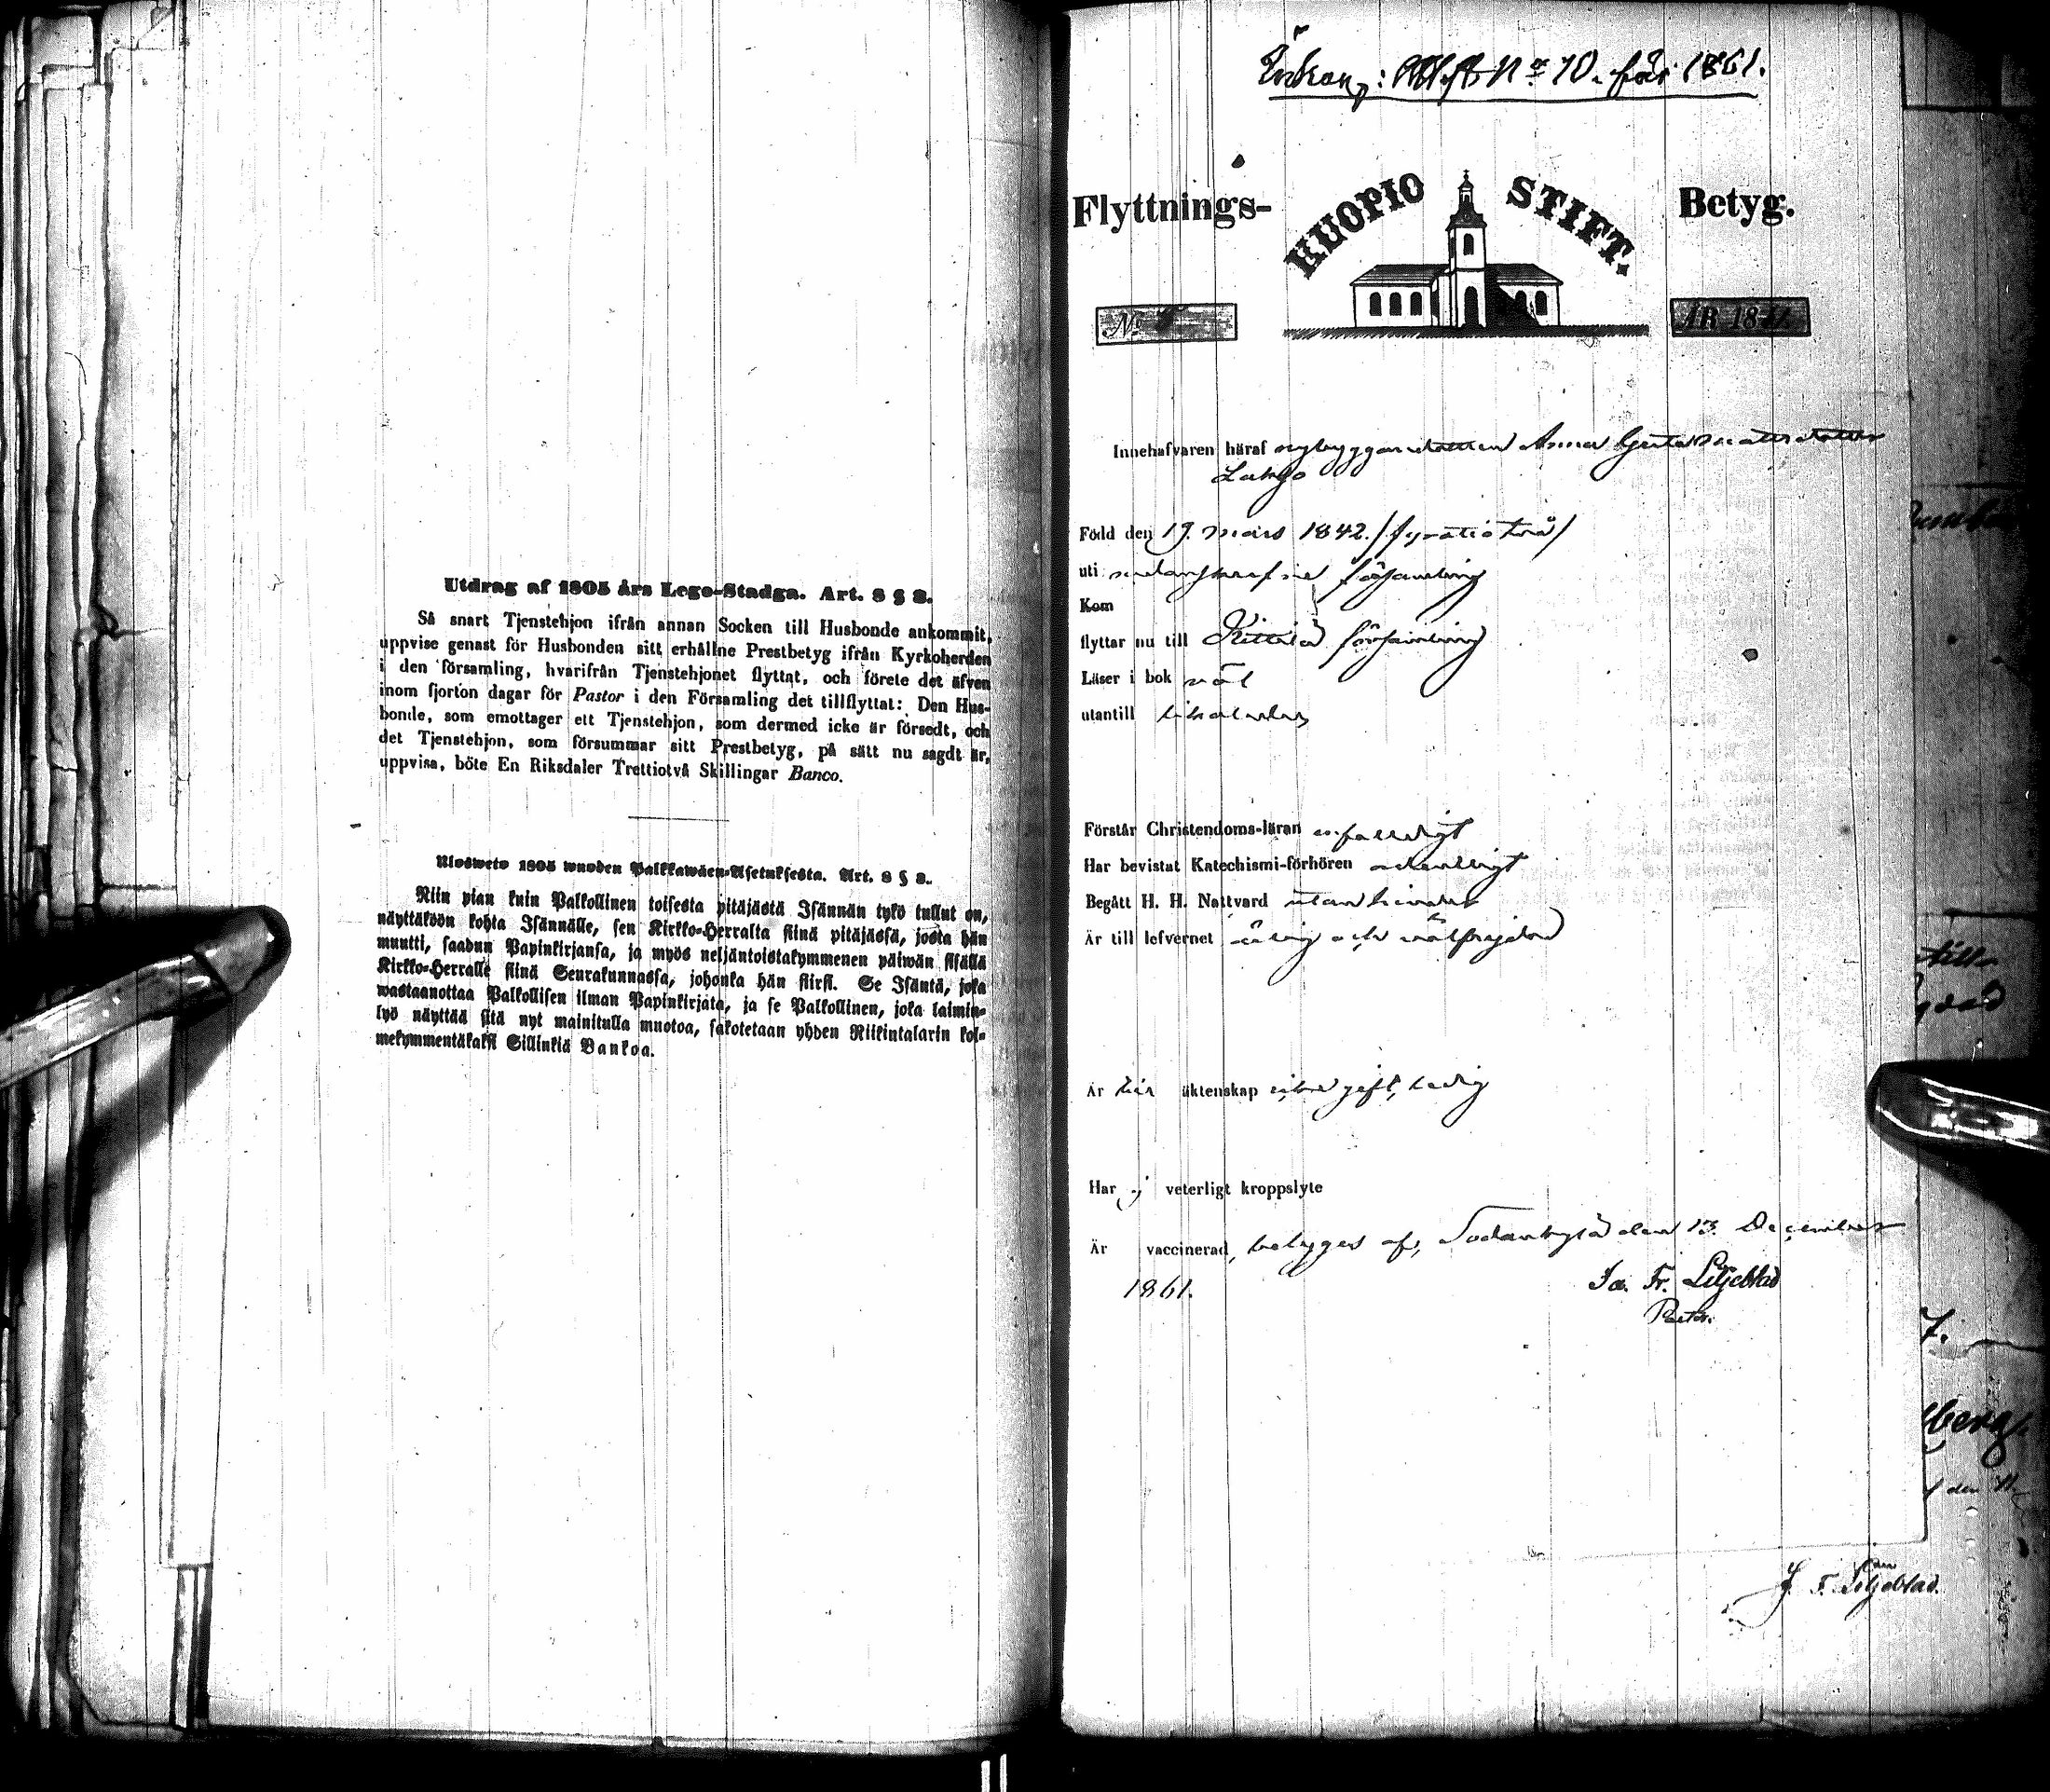 Utdrag af 1805 års Lego-Stadga. Art. 8 § 8.
Så snart Tjenstehjon ifrån annan Socken till Husbonde ankommit,
uppvise genast för Husbonden sitt erhållne Prestbetyg ifrån Kyrkoherden
i den församling, hvarifrån Tjenstehjonet flyttat, och förete det äfven
inom fjorton dagar för Pastor i den Församling det tillflyttat: Den Hus-
bonde, som emottager ett Tjenstehjon, som dermed icke är försedt, och
det Tjenstehjon, som försummar sitt Prestbetyg, på sätt nu sagdt är,
uppvisa, böte En Riksdaler Trettiotvå Skillingar Banco.
Ulosweto 1805 wuoden Palkkawäen-Asetuksesta. Art. 8 § 8.
Niin pian kuin Palkollinen toisesta pitäjästä Isännän tykö tullut on,
näyttäköön kohta Isännälle, sen Kirkko-Herralta siinä pitäjässä, josta hän
muutti, saadun Papinkirjansa, ja myös neljäntoistakymmenen päiwän sisällä
Kirkko-Herralle siinä Seurakunnassa, johonka hän siirsi. Se Isäntä, joka
wastaanottaa Palkollisen ilman Papinkirjata, ja se Palkollinen, joka laimin-
lyö näyttää sitä nyt mainitulla muotoa, sakotetaan yhden Riikintalarin kol-
mekymmentäkaksi Sillinkiä Bankoa.
No 10. för 1861.
Flyttnings- KUOPIO STIFT. Betyg.
No ÅR 18
Innehafvaren häraf nybyggaredottren Anna Greta Mattsdotter
Född den 19. mars 1842. /fyratiotvå/
uti församling
Kom
flyttar nu till Kittilä församling
Läser i bok väl
utantill
Förstår Christendoms-läran enfaldigt
Har bevistat Katechismi-förhören ordentligt
Begått H. H. Nattvard utan hinder
Är till lefvernet ärlig och välfrejdad
Är till äktenskap icke gift, ledig
Har ej veterligt kroppslyte
Är vaccinerad, betyges af, Sodankylä den 13. December
1861. Jo. Fr. Liljeblad
Pastor.
till
berg
den
J. F. Liljeblad.